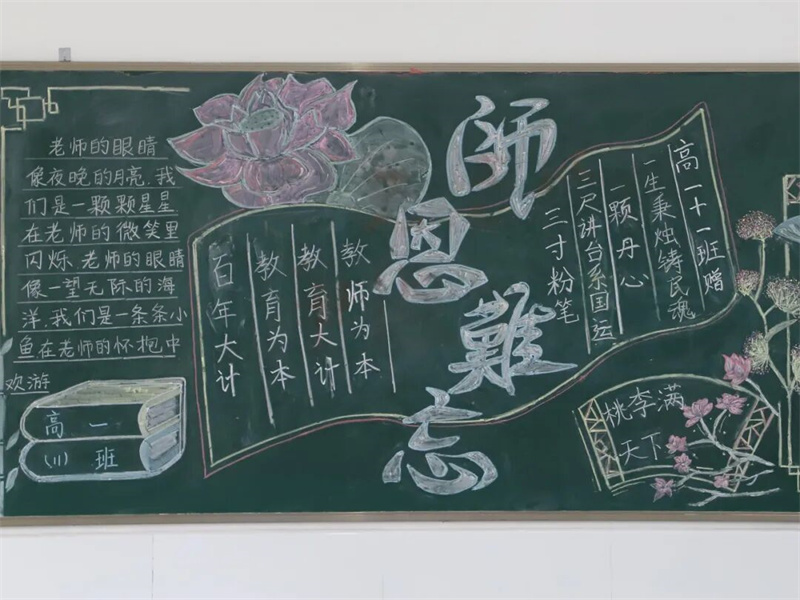 老师的眼睛
像夜晚的月亮.我
们是一颗颗星星
在老师的微笑里
闪烁.老师的眼睛
像一望无际的海
洋.我们是一条条小
鱼在老师的怀抱中
欢游
高一
(11)班
百年大计
教育为本
教育大计
教师为本
师恩難忘
三寸粉笔
三尺讲台系国运
一颗丹心
一生秉烛铸民魂
高一十一班赠
桃李满
天下